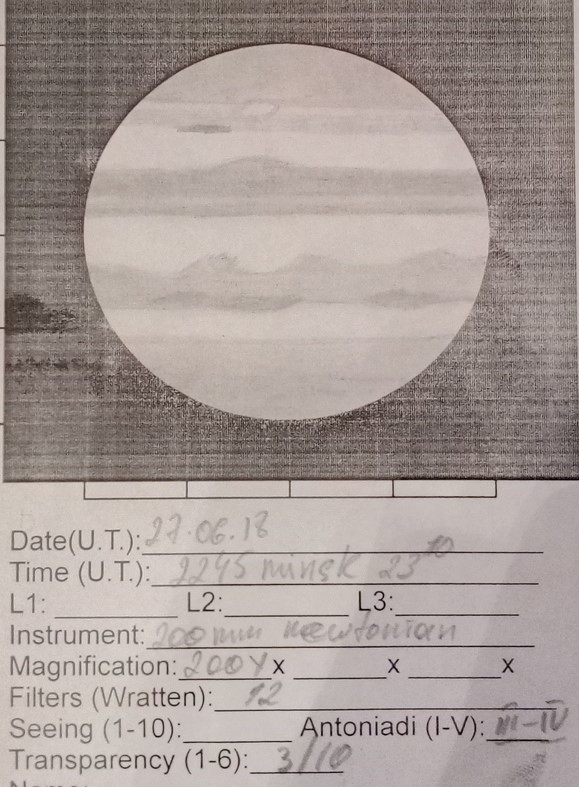 Date(U.T.): 27.06.18
Time (U.T.): 2245 minsk 23 10
L1: L2: L3:
Instrument: 200mm newtonian
Magnification: 200X x x x
Filters (Wratten): 12
Seeing (1-10): Antoniadi (I-V): III-IV
Transparency (1-6): 3/10
Name: